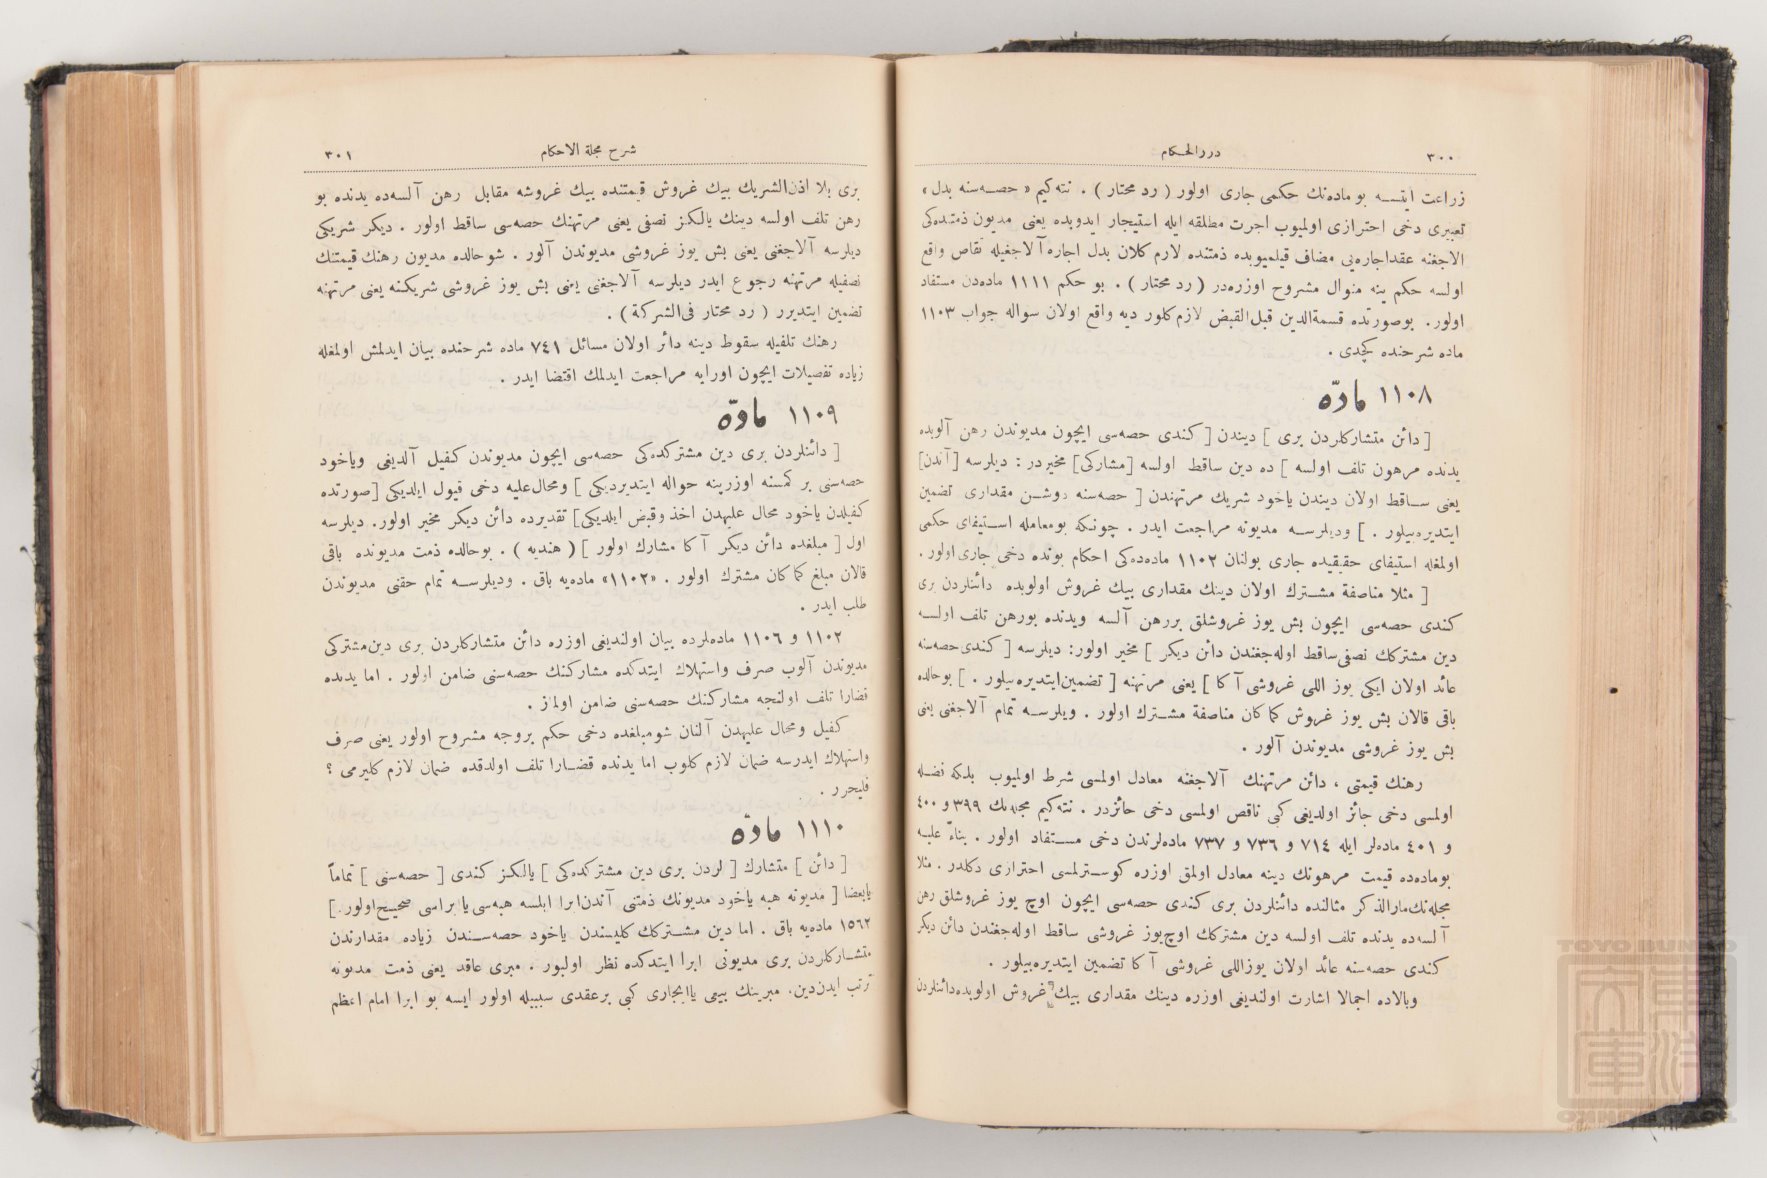 ٣٠٠
دررالحكام
زراعت ايتسه بو ماده‌نك حكمى جارى اولور ( رد محتار ) . نته‌كيم « حصه‌سنه بدل »
تعبيرى دخى احترازى اولميوب اجرت مطلقه ايله استيجار ايدوبده يعنى مديون ذمتنده‌كى
الاجغنه عقداجاره‌يى مضاف قيلميوبده ذمتنده لازم كلان بدل اجاره آلاجغيله تقاص واقع
اولسه حكم ينه منوال مشروح اوزره‌در ( رد محتار ) . بو حكم ١١١١ ماده‌دن مستفاد
اولور. بوصورتده قسمة‌الدين قبل‌القبض لازم‌كلور ديه واقع اولان سواله جواب ١١٠٣
ماده شرحنده كچدى .
١١٠٨ مادّه
[ دائن متشاركلردن برى ] ديندن [ كندى حصه‌سى ايچون مديوندن رهن آلوبده
يدنده مرهون تلف اولسه ] ده دين ساقط اولسه [مشاركى] مخيردر : ديلرسه [آندن]
يعنى ساقط اولان ديندن ياخود شريك مرتهندن [ حصه‌سنه دوشن مقدارى تضمين
ايتديره‌بيلور . ] وديلرسه مديونه مراجعت ايدر . چونكه بومعامله استيفاى حكمى
اولمغله استيفاى حقيقيده جارى بولنان ١١٠٢ ماده‌ده‌كى احكام بونده دخى جارى اولور .
[ مثلا مناصفة مشترك اولان دينك مقدارى بيك غروش اولوبده دائنلردن برى
كندى حصه‌سى ايچون بش يوز غروشلق بررهن آلسه ويدنده بورهن تلف اولسه
دين مشتركك نصفى‌ساقط اوله‌جغندن دائن ديكر ] مخير اولور: ديلرسه [ كندى‌حصه‌سنه
عائد اولان ايكى يوز اللى غروشى آكا ] يعنى مرتهنه [ تضمين‌ايتديره‌بيلور . ] بوحالده
باقى قالان بش يوز غروش كما كان مناصفة مشترك اولور . ويلرسه تمام آلاجغنى يعنى
بش يوز غروشى مديوندن آلور .
رهنك قيمتى ، دائن مرتهنك آلاجغنه معادل اولمسى شرط اولميوب بلكه فضله
اولمسى دخى جائز اولديغى كبى ناقص اولمسى دخى حائزدر . نته‌كيم مجله‌نك ٣٩٩ و ٤٠٠
و ٤٠١ ماده‌لر ايله ٧١٤ و ٧٣٦ و ٧٣٧ ماده‌لرندن دخى مستفاد اولور . بناءً عليه
بوماده‌ده قيمت مرهونك دينه معادل اولمق اوزره كوسترلمسى احترازى دكلدر . مثلا
مجله‌نك‌مارالذكر مثالنده دائنلردن برى كندى حصه‌سى ايچون اوچ يوز غروشلق رهن
آلسه‌ده يدنده تلف اولسه دين مشتركك اوچ‌يوز غروشى ساقط اوله‌جغندن دائن ديكر
كندى حصه‌سنه عائد اولان يوزاللى غروشى آكا تضمين ايتديره‌بيلور .
وبالاده اجمالا اشارت اولنديغى اوزره دينك مقدارى بيك غروش اولوبده‌دائنلردن
شرح مجلة الاحكام
٣٠١
برى بلا اذن‌الشريك بيك غروش قيمتنده بيك غروشه مقابل رهن آلسه‌ده يدنده بو
رهن تلف اولسه دينك يالكز نصفى يعنى مرتهنك حصه‌سى ساقط اولور . ديكر شريكى
ديلرسه آلاجغنى يعنى بش يوز غروشى مديوندن آلور . شوحالده مديون رهنك قيمتنك
نصفيله مرتهنه رجوع ايدر ديلرسه آلاجغنى يعنى بش يوز غروشى شريكنه يعنى مرتهنه
تضمين ايتديرر ( رد محتار فى‌الشركة ) .
رهنك تلفيله سقوط دينه دائر اولان مسائل ٧٤١ ماده شرحنده بيان ايدلمش اولمغله
زياده تفصيلات ايچون اورايه مراجعت ايدلمك اقتضا ايدر .
١١٠٩ مادّه
[ دائنلردن برى دين مشتركده‌كى حصه‌سى ايچون مديوندن كفيل آلديغى وياخود
حصه‌سنى بر كمسنه اوزرينه حواله ايتديرديكى ] ومحال‌عليه دخى قبول ايلديكى [صورتده
كفيلدن ياخود محال عليهدن اخذ وقبض ايلديكى] تقديرده دائن ديكر مخير اولور. ديلرسه
اول [ مبلغده دائن ديكر آكا مشارك اولور ] ( هنديه ) . بوحالده ذمت مديونده باقى
قالان مبلغ كما كان مشترك اولور . «١١٠٢» ماده‌يه باق . وديلرسه تمام حقنى مديوندن
طلب ايدر .
١١٠٢ و ١١٠٦ ماده‌لرده بيان اولنديغى اوزره دائن متشاركلردن برى دين‌مشتركى
مديوندن آلوب صرف واستهلاك ايتدكده مشاركنك حصه‌سنى ضامن اولور . اما يدنده
قضارا تلف اولنجه مشاركنك حصه‌سنى ضامن اولماز .
كفيل ومحال عليهدن آلنان شومبلغده دخى حكم بروجه مشروح اولور يعنى صرف
واستهلاك ايدرسه ضمان لازم كلوب اما يدنده قضارا تلف اولدقده ضمان لازم كليرمى ؟
فليحرر .
١١١٠ مادّه
[ دائن ] متشارك [ لردن برى دين مشتركده‌كى ] يالكز كندى [ حصه‌سنى ] تماماً
يابعضا [ مديونه هبه ياخود مديونك ذمتنى آندن‌ابرا ايلسه هبه‌سى‌يا ابراسى صحيح‌اولور. ]
١٥٦٢ ماده‌يه باق . اما دين مشتركك كليسندن ياخود حصه‌سندن زياده مقدارندن
متشاركلردن برى مديونى ابرا ايتدكده نظر اولنور . مبرى عاقد يعنى ذمت مديونه
ترتب ايدن‌دين، مبرينك بيعى ياايجارى كبى برعقدى سببيله اولور ايسه بو ابرا امام اعظم
TOYO BUNKO